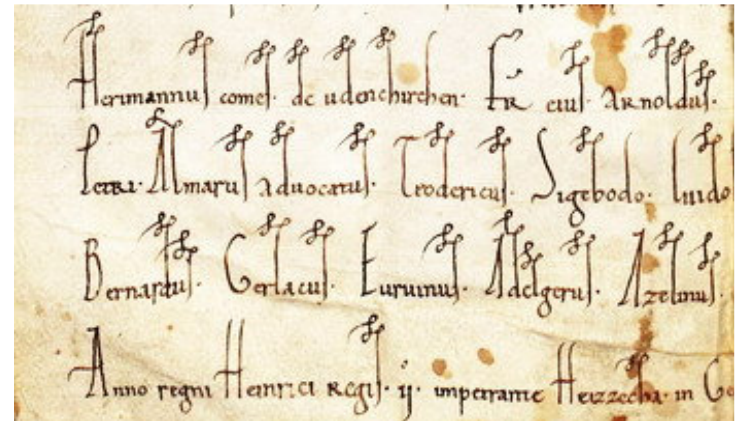 Herimannus comes. de udenchirchen. FR eius. ARnoldus.
PetRI. Almarus advocatus. Teodericus. Sigebodo. luido
Bernardus. Gerlacus. Euruinus. Adelgerus. Azelinus.
Anno regni Heinrici Regis. ij. imperante Heizzecha. in Co